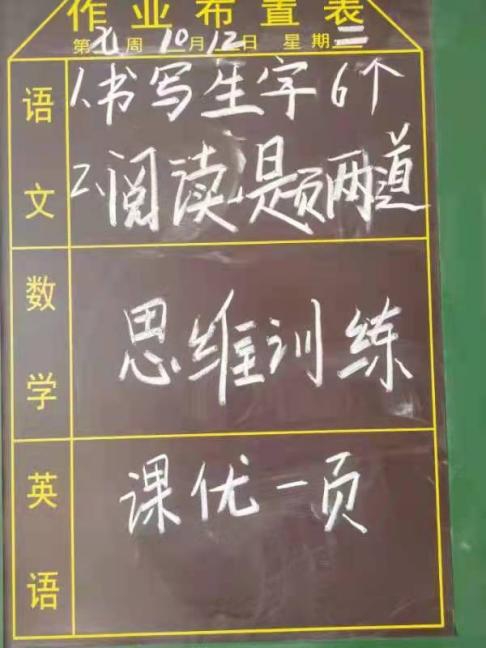 作业布置表
第七周 10月12日 星期二
语文
1、书写生字6个
2、阅读题两道
数学
思维训练
英语
课优一页